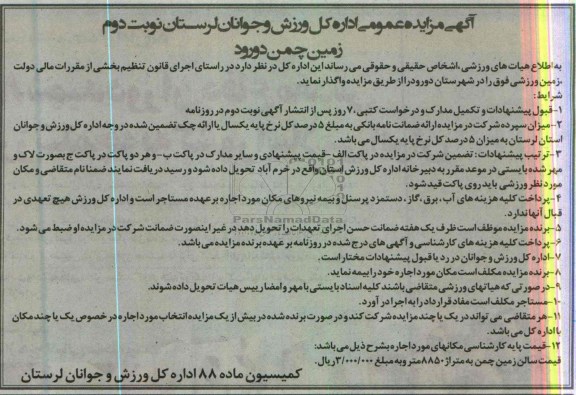 آگهی مزایده عمومی اداره کل ورزش و جوانان لرستان نوبت دوم
زمین چمن دورود
به اطلاع هیات های ورزشی، اشخاص حقیقی و حقوقی می رساند این اداره کل در نظر دارد در راستای اجرای قانون تنظیم بخشی از مقررات مالی دولت
،زمین ورزشی فوق را در شهرستان دورود را از طریق مزایده واگذار نماید.
شرایط:
۱-قبول پیشنهادات و تکمیل مدارک و درخواست کتبی ۷۰ روز پس از انتشار آگهی نوبت دوم در روزنامه
۲-میزان سپرده شرکت در مزایده ارائه ضمانت نامه بانکی به مبلغ ۵ درصد کل نرخ پایه یکسال یا ارائه چک تضمین شده در وجه اداره کل ورزش و جوانان
استان لرستان به میزان ۵ درصد کل نرخ پایه یکسال می باشد.
۳-ترتیب پیشنهادات: تضمین شرکت در مزایده در پاکت الف -قیمت پیشنهادی و سایر مدارک در پاکت ب- و هر دو پاکت در پاکت ج بصورت لاک و
مهر شده بایستی در موعد مقرر به دبیرخانه اداره کل ورزش استان واقع در خرم آباد تحویل داده شود و رسید دریافت نمایند ضمنا نام متقاضی و مکان
مورد نظر ورزشی باید روی پاکت قید شود.
۴-پرداخت کلیه هزینه های آب، برق، گاز، دستمزد پرسنل و بیمه نیروهای مکان مورد اجاره بر عهده مستاجر است و اداره کل ورزش هیچ تعهدی در
قبال آنها ندارد.
۵-برنده مزایده موظف است ظرف یک هفته ضمانت حسن اجرای تعهدات را تحویل دهد در غیر اینصورت ضمانت شرکت در مزایده او ضبط می شود.
۶-پرداخت کلیه هزینه های کارشناسی و آگهی های درج شده در روزنامه بر عهده برنده مزایده می باشد.
۷-اداره کل ورزش و جوانان در رد یا قبول پیشنهادات مختار است.
۸-برنده مزایده مکلف است مکان مورد اجاره خود را بیمه نماید.
۹-در صورتی که هیاتهای ورزشی متقاضی باشند کلیه اسناد بایستی با مهر و امضار ییس هیات تحویل داده شوند.
۱۰-مستاجر مکلف است مفاد قرارداد را به اجرا در آورد.
۱۱-هر متقاضی می تواند در یک یا چند مزایده شرکت کند و در صورت برنده شده در بیش از یک مزایده انتخاب مورد اجاره در خصوص یک یا چند مکان
با اداره کل می باشد.
۱۲-قیمت پایه کارشناسی مکانهای مورد اجاره بشرح ذیل می باشد:
قیمت سالن زمین چمن به متراژ ۸۸۵۰ متر و به مبلغ ۳/۰۰۰/۰۰۰ ریال.
کمیسیون ماده ۸۸ اداره کل ورزش و جوانان لرستان
ParsNamadData